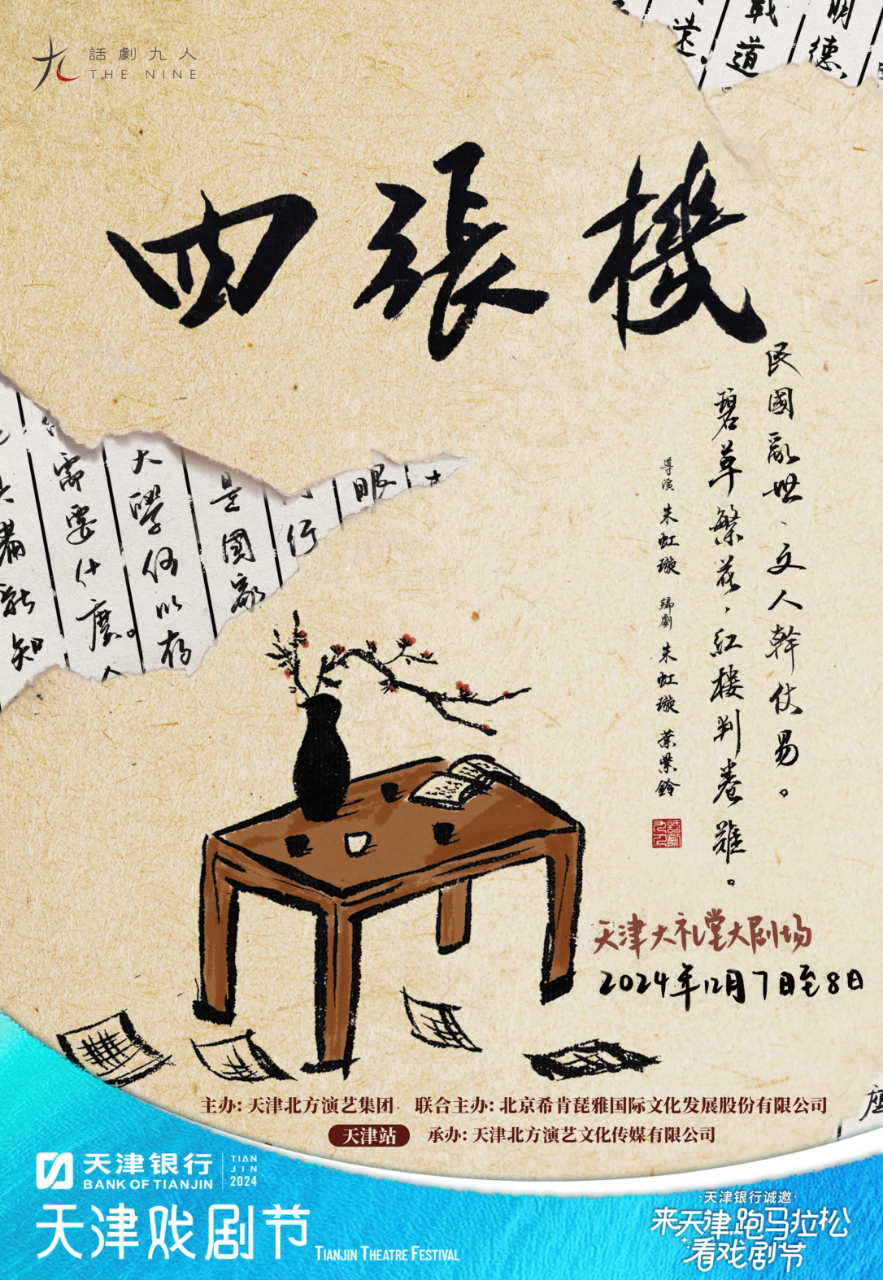 話劇九人
THE NINE
四張機
民國亂世、文人幹仗易。
碧草繁花，紅樓判卷難。
導演 朱虹璇 編劇 朱虹璇 葉紫鈴
道
明德,
需要什麽。人
大學何以存
是國家
行
眼
新知
天津大礼堂大剧场
2024年12月7日至8日
主办: 天津北方演艺集团 联合主办: 北京希肯琵雅国际文化发展股份有限公司
天津站 承办: 天津北方演艺文化传媒有限公司
天津银行
BANK OF TIANJIN
TIAN
JIN
2024
天津戏剧节
TIANJIN THEATRE FESTIVAL
·天津银行诚邀·
来天津跑马拉松
看戏剧节